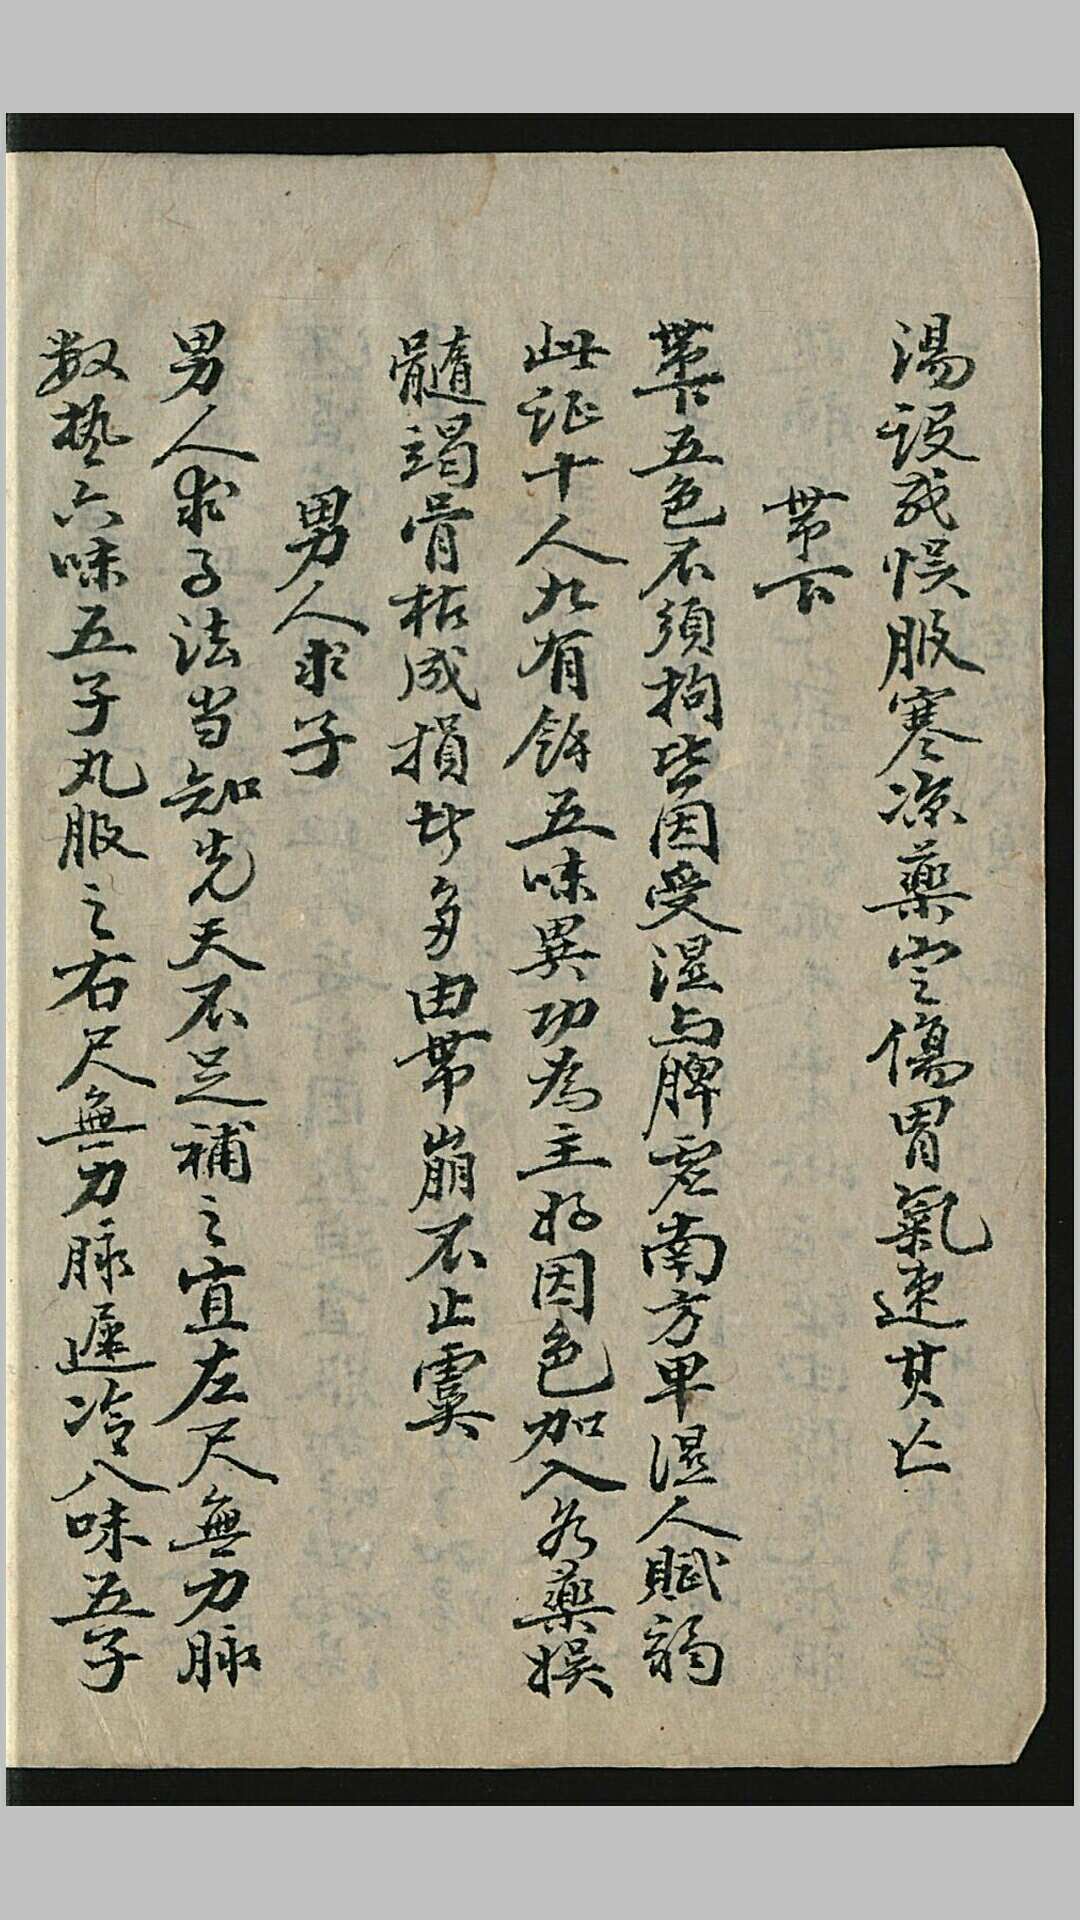 湯設或悞服寒凉藥定傷胃氣速其亡
帶下
帶下五色不須拘皆因受湿与脾虚南方卑湿人賦弱
此证十人九有餘五味異功為主好因色加入各藥娱
髓竭骨枯成損者多由帶崩不止虞
男人求子
男人求子法当知先天不足補之宜左尺無力脉
数热六味五子丸服之右尺無力脉遲冷八味五子